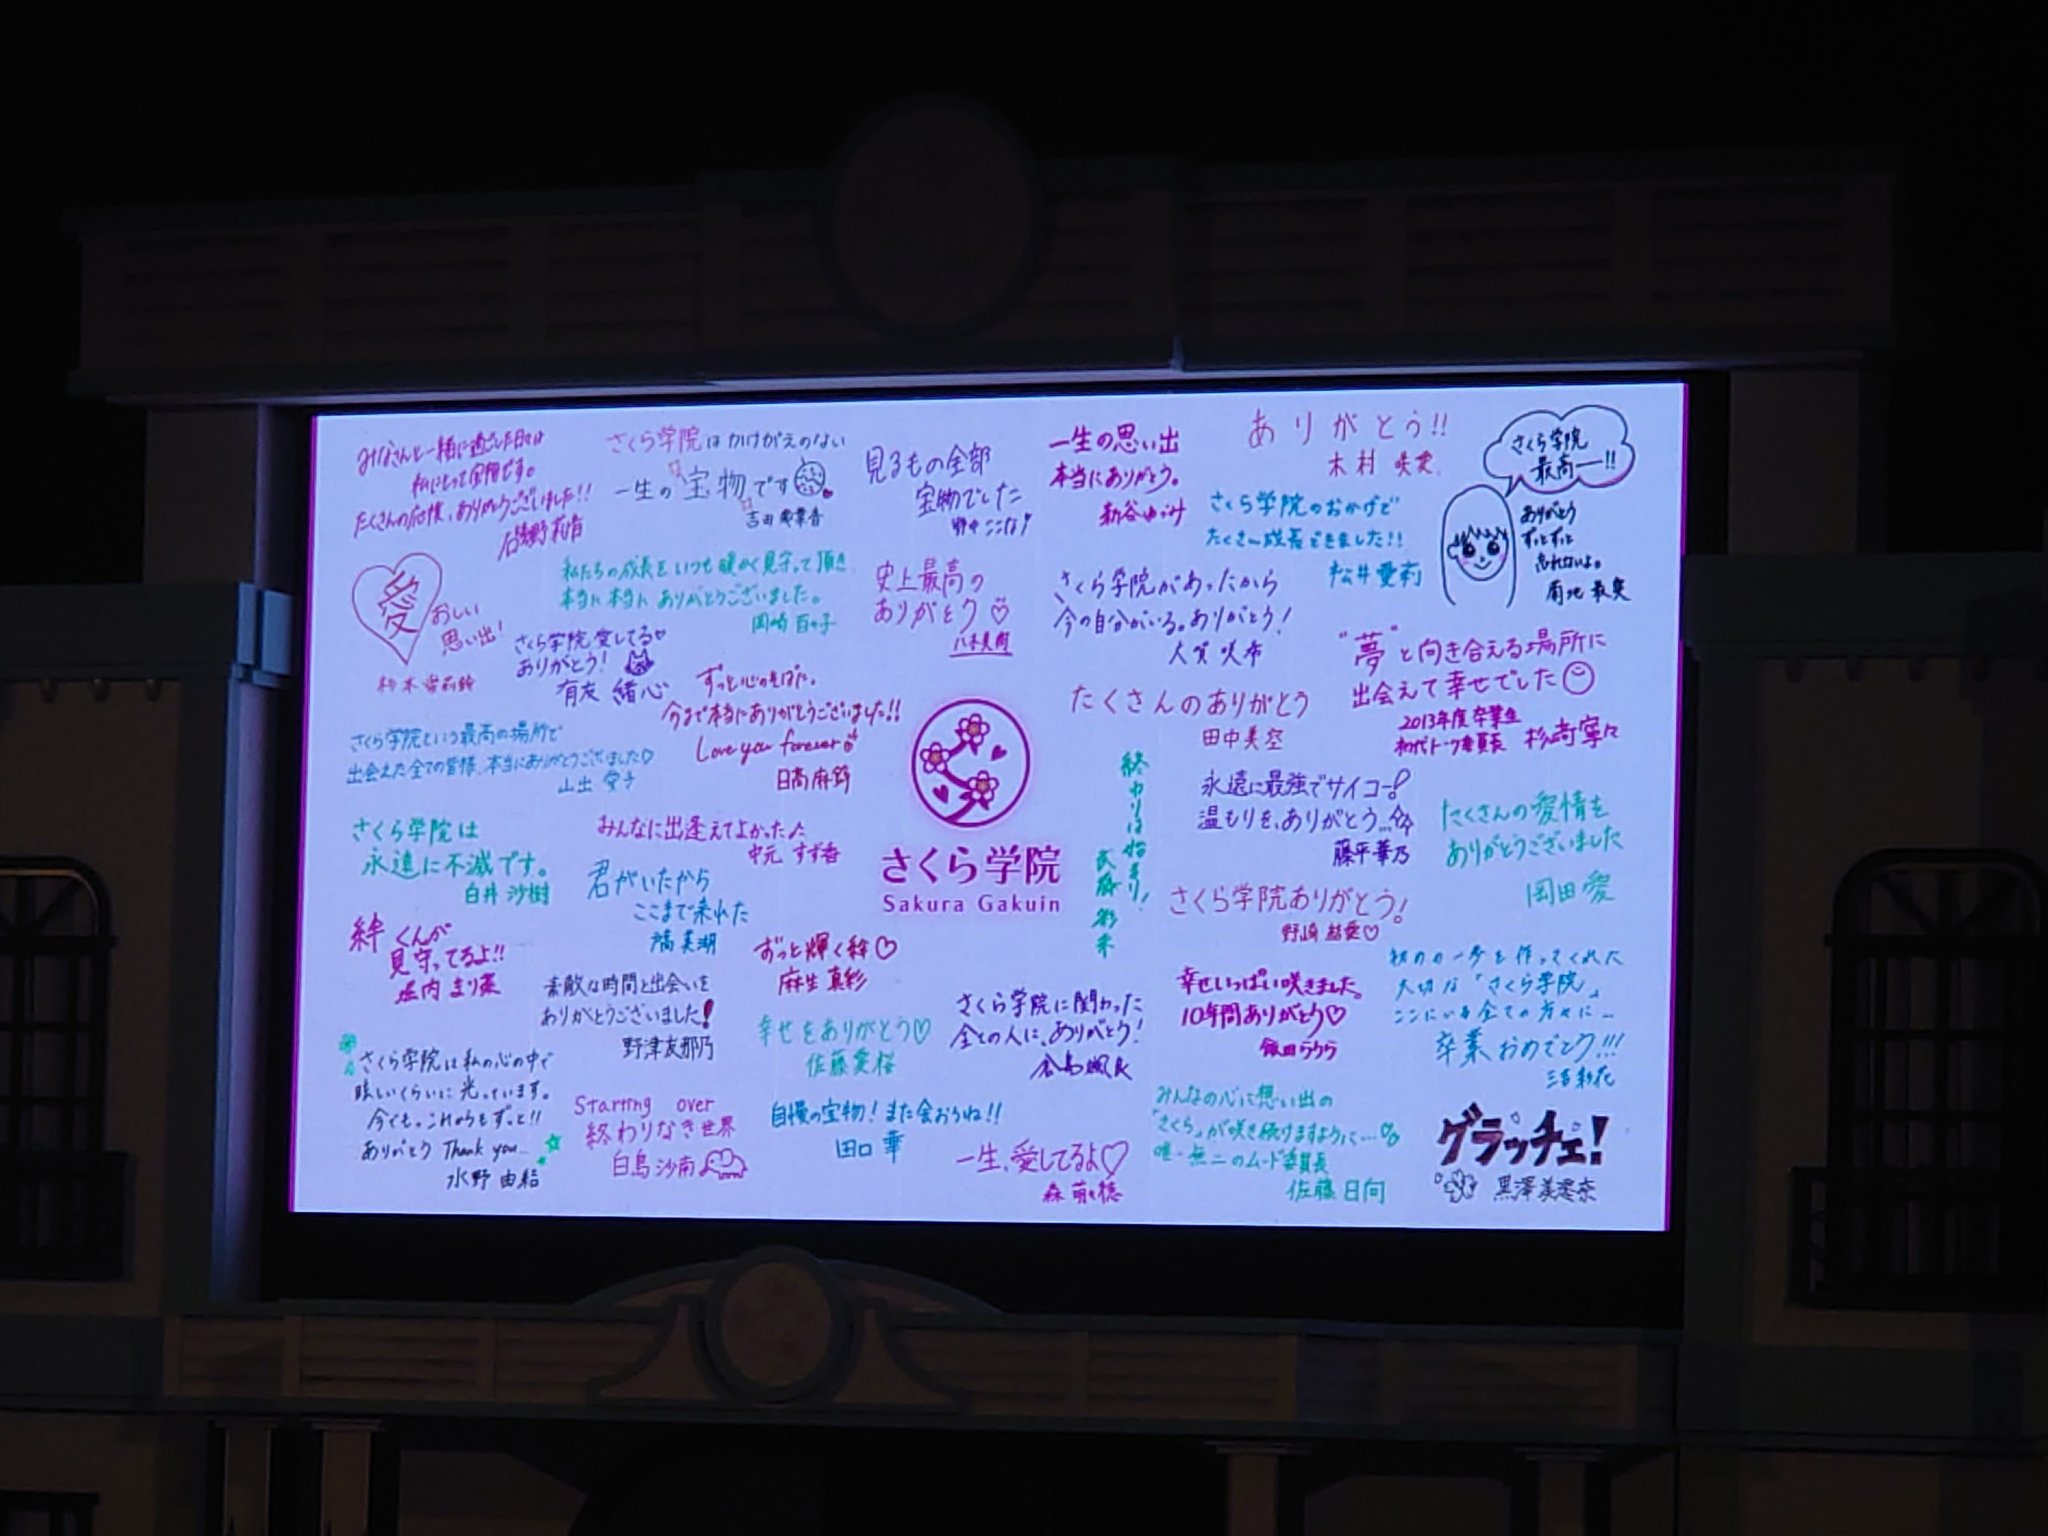 みなさんと一緒に過ごした日々は
私にとって宝物です。
たくさんの応援、ありがとうございました!!
石綿野莉音
さくら学院はかけがえのない
一生の宝物です
吉田爽葉香
見るもの全部
宝物でした
野中ここな
一生の思い出
本当にありがとう。
新谷ゆづみ
ありがとう!!
木村咲愛
さくら学院
最高ー!!
ありがとう
ずっとずっと
忘れないよ。
さくら学院のおかげで
たくさん成長できました!!
松井愛莉
愛おしい
思い出!
私たちの成長をいつも暖かく見守って頂き
本当に本当にありがとうございました。
岡崎百々子
史上最高の
ありがとう♡
八木美樹
さくら学院があったから
今の自分がいる。ありがとう!
大賀咲希
さくら学院愛してる♡
ありがとう!
有友緒心
"夢"と向き合える場所に
出会えて幸せでした
2013年度卒業生
初代トーク委員長 杉﨑寧々
ずっと心のそばに。
今まで本当にありがとうございました!!
Love you forever
日髙麻鈴
たくさんのありがとう
田中美空
さくら学院という最高の場所で
出会えた全ての皆様、本当にありがとうございました♡
山出愛子
終わりは始まり!
武藤彩未
永遠に最強でサイコー!
温もりを、ありがとう...☆
藤平華乃
たくさんの愛情を
ありがとうございました
岡田愛
さくら学院は
永遠に不滅です。
白井沙樹
みんなに出逢えてよかった♪
中元すず香
さくら学院
Sakura Gakuin
君がいたから
ここまで来れた
さくら学院ありがとう!
野崎結愛♡
絆くんが
見守ってるよ!!
堀内まり菜
ずっと輝く絆♡
麻生真彩
初めの一歩を作ってくれた
大切な「さくら学院」
ここにいる全ての方々に...
卒業おめでとう!!!
三吉彩花
素敵な時間と出会いを
ありがとうございました!
野津友那乃
さくら学院に関わった
全ての人に、ありがとう!
倉島颯良
幸せいっぱい咲きました。
10年間ありがとう♡
飯田らうら
幸せをありがとう♡
佐藤愛桜
さくら学院は私の心の中で
眩しいくらいに光っています。
今でも。これからもずっと!!
ありがとう Thank you...
水野由結
Starting over
終わりなき世界
白鳥沙南
自慢の宝物!また会おうね!!
田口華
一生、愛してるよ♡
森萌々穂
みんなの心に想い出の
「さくら」が咲き続けますように...
唯一無二のムード委員長
佐藤日向
グラッチェ!
黒澤美澪奈